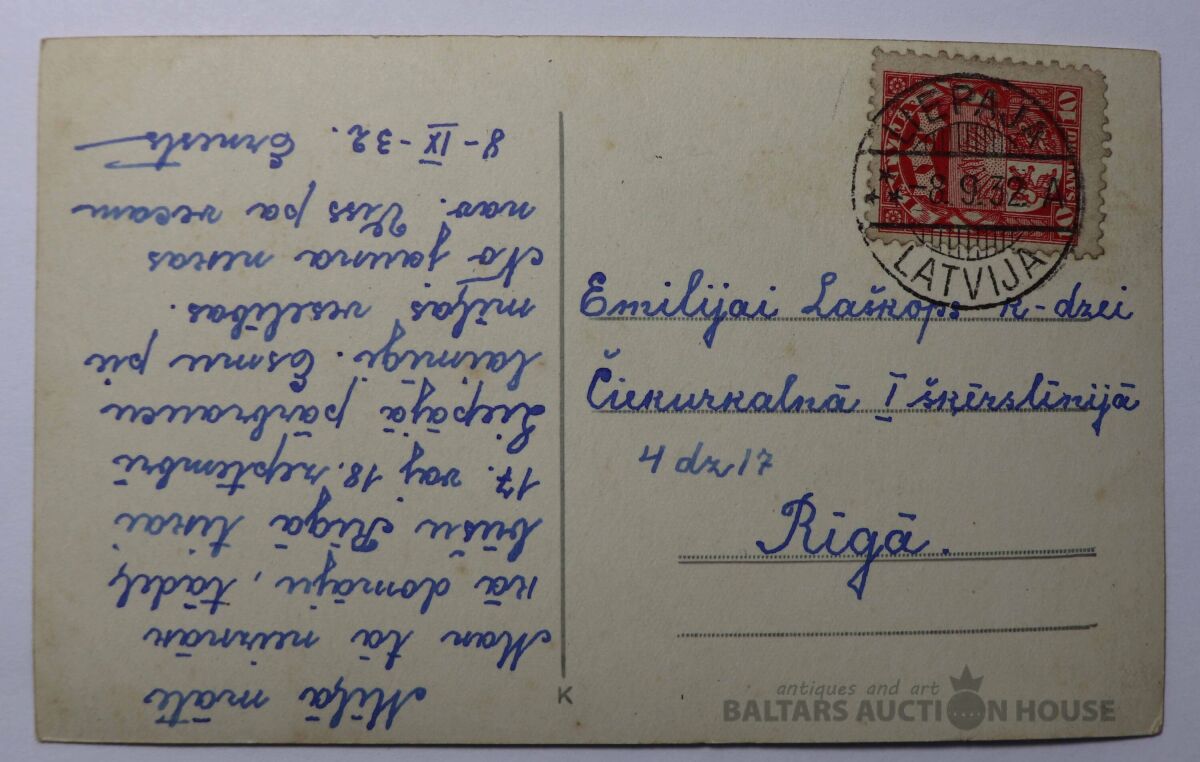 Mīļā māte
Man tā neiznāk
kā domāju, tādēļ
būšu Rīgā tikai
17. vaj 18. septembrī
Liepājā pārbraucu
laimīgi. Esmu pie
mīļās veselības.
No jauna nekas
nav. Viss pa vecam
8-IX-32. Ernests
LATVIJA
10 SANTIMU 10
LIEPAJA
-8. 9.32 A
LATVIJA
Emilijai Laškops k-dzei
Čiekurkalnā I šķērslīnijā
4 dz 17
Rīgā.
K
antiques and art
BALTARS AUCTION HOUSE